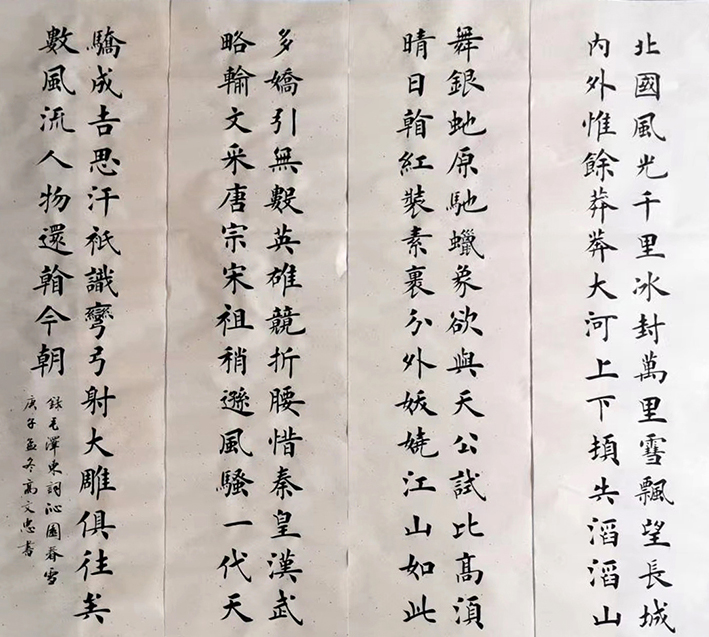 北國風光千里冰封萬里雪飄望長城
內外惟餘莽莽大河上下頓失滔滔山
舞銀虵原馳蠟象欲與天公試比高須
晴日看紅裝素裹分外妖嬈江山如此
多嬌引無數英雄競折腰惜秦皇漢武
略輸文采唐宗宋祖稍遜風騷一代天
驕成吉思汗衹識彎弓射大雕俱往矣
數風流人物還看今朝
錄毛澤東詞沁園春雪
庚子孟冬高文忠書